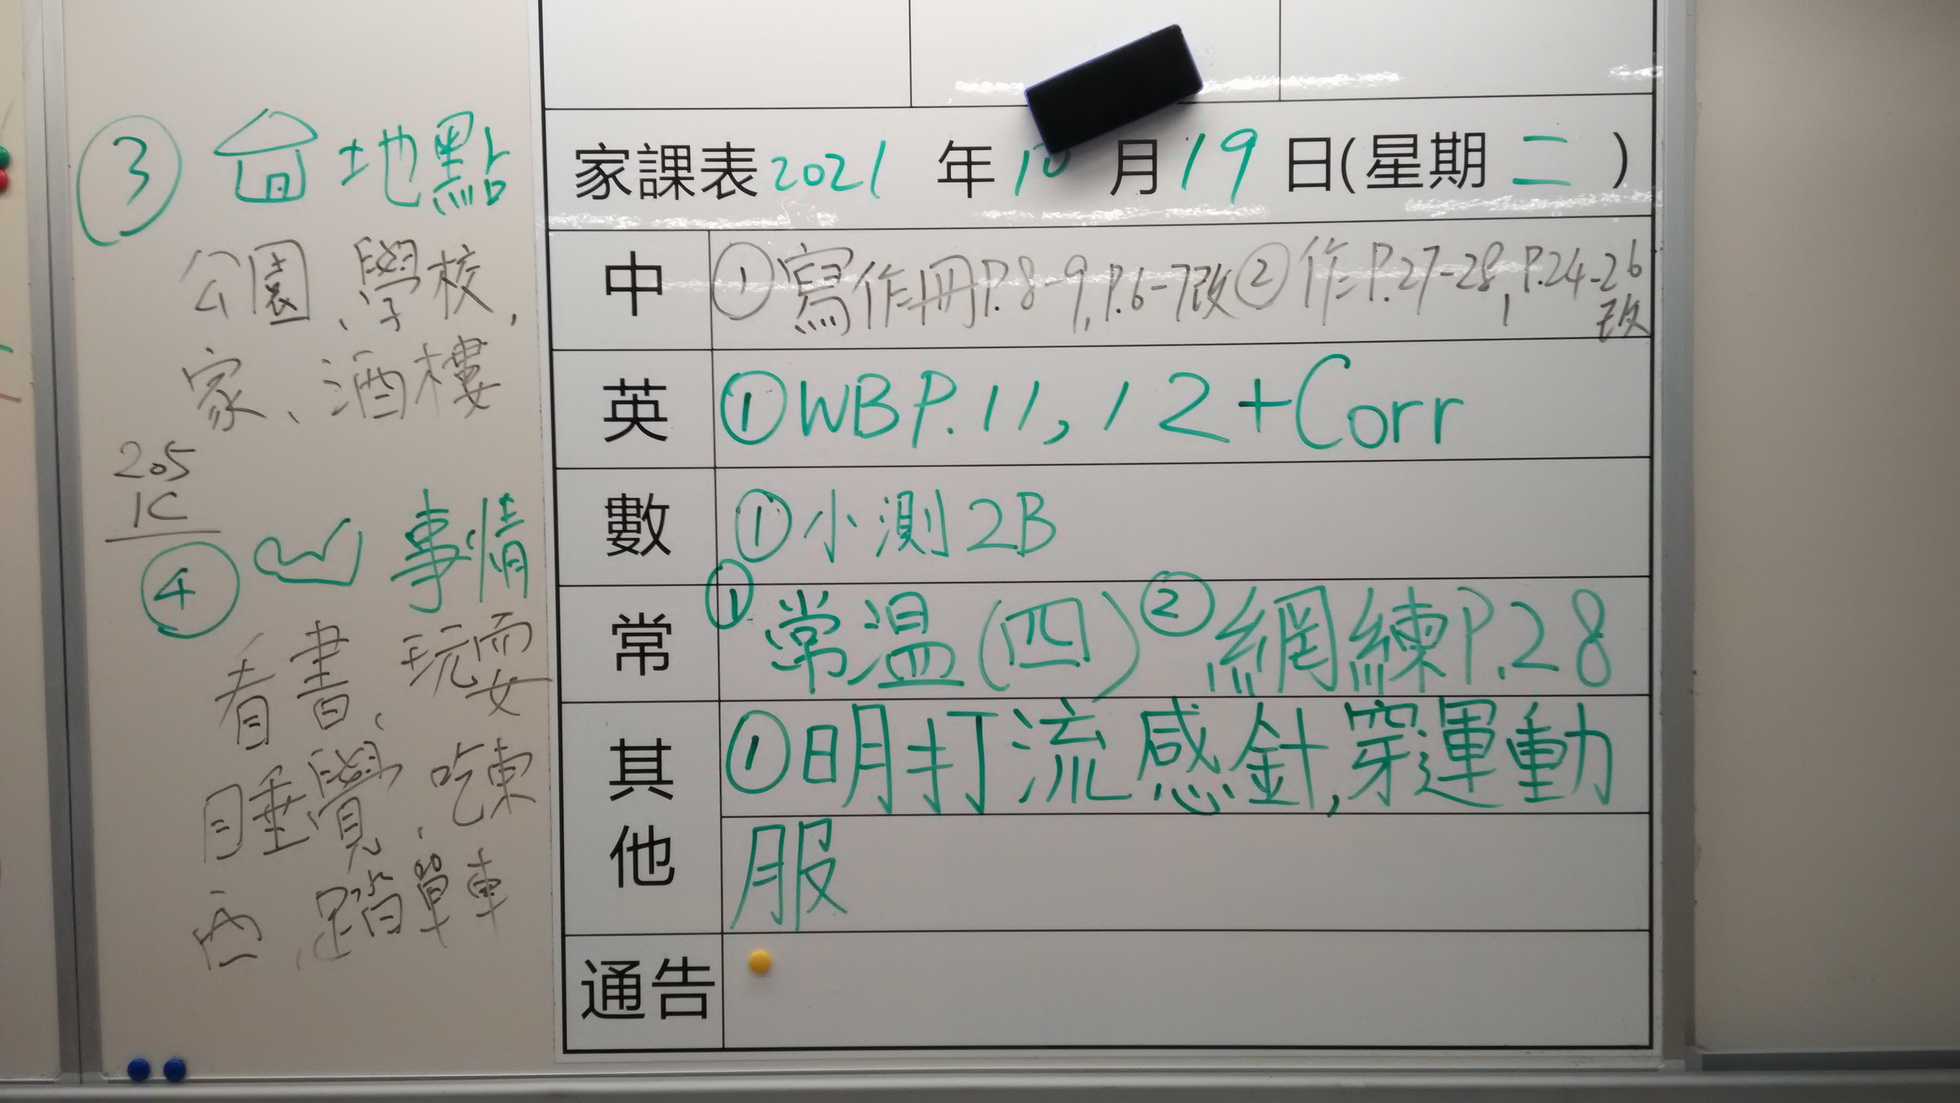 ③ 地點
公園、學校，
家、酒樓
205
1C
④ 事情
看書、玩耍
睡覺，吃東
西，踏單車
家課表 2021 年 10 月 19 日(星期 二 )
中 ①寫作冊P.8-9, P.6-7改②作P.27-28, P.24-26
改
英 ①WBP.11, 12+Corr
數 ①小測2B
常 ①常温(四) ②網練P.28
其他 ①明打流感針,穿運動
服
通告